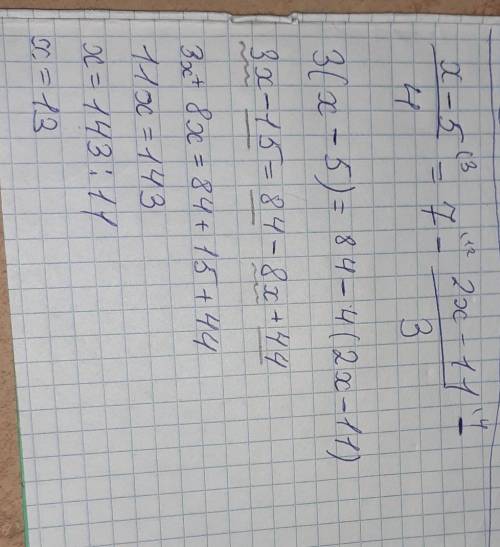 x - 5⁽³ / 4 = 7⁽¹² - 2x - 11⁽⁴ / 3
3(x - 5) = 84 - 4(2x - 11)
3x - 15 = 84 - 8x + 44
3x + 8x = 84 + 15 + 44
11x = 143
x = 143 : 11
x = 13